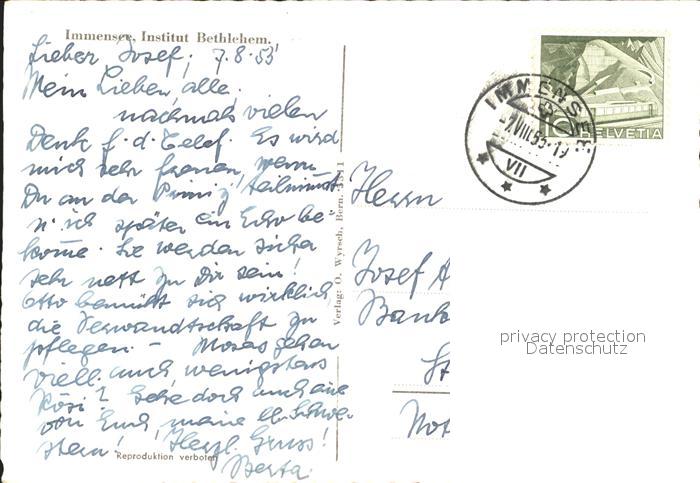 Immensee, Institut Bethlehem.
Lieber Josef, 7.8.53
Mein Lieben alle.
nochmals vielen
Dank f. d. Telef. Es wird
mich sehr freuen, wenn
Du an der teilnimmst
u. ich später ein Echo be-
komme. Sie werden sicher
sehr nett zu Dir sein!
Otto bemüht sich wirklich,
die Verwandtschaft zu
pflegen. - Morgen gehen
viell. auch wenigstens
Rösi? Gehe doch auch eine
von Euch, meine lb. Schwe-
stern! Herzl. Gruss!
Berta.
Reproduktion verboten
Verlag: O. Wyrsch, Bern.
Herrn
Josef A
Bank
St
Not
IMMENSEE
VIII.53-19
VII
10
HELVETIA
privacy protection
Datenschutz